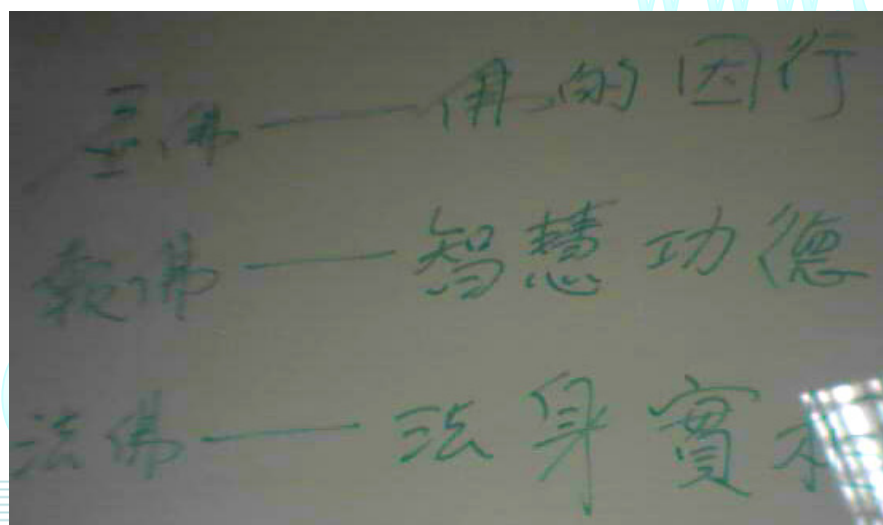 佛——佛的因行
報佛——智慧功德
法佛——法身實